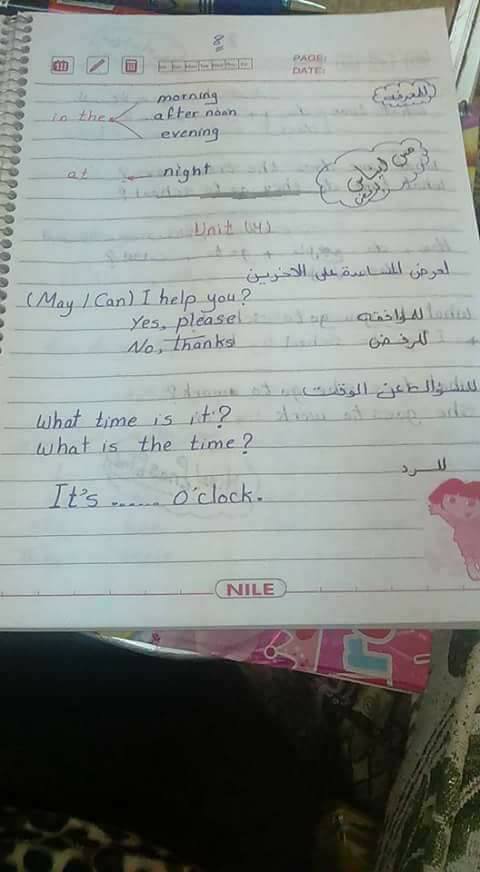 8
PAGE:
DATE:
للمعرفة
morning
in the after noon
evening
at night
Unit (4)
لعرض المساعدة على الاخرين
(May / Can) I help you?
Yes, please للموافقة
No, thanks للرفض
للسؤال عن الوقت
What time is it?
What is the time?
للرد
It's ...... o'clock.
NILE